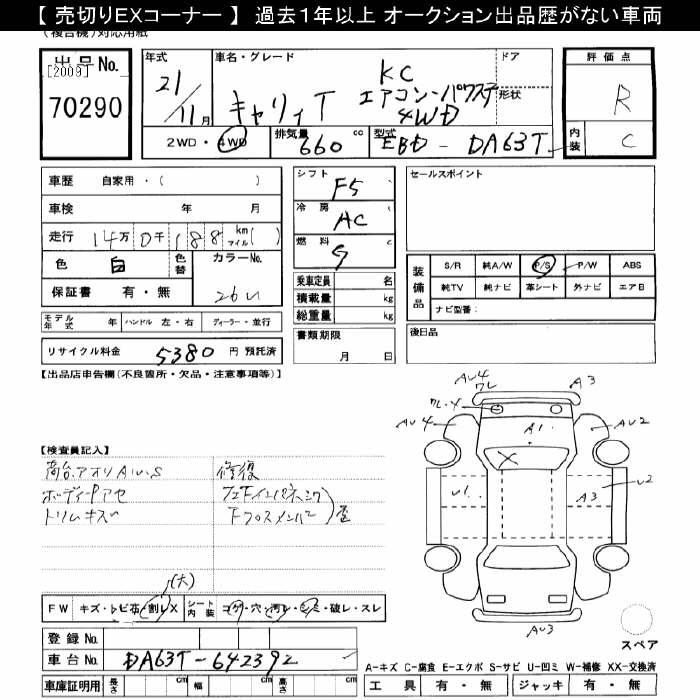 【 売切りEXコーナー 】 過去1年以上 オークション出品歴がない車両
(複合機)対応用紙
出品 No.
[2009]
70290
年式
21/11月
車名・グレード
キャリィT
KC
エアコン・パワステ
4WD
ドア
形状
2WD・4WD
排気量 660 cc
型式 EBD-DA63T
評価点
R
内装 C
車歴 自家用・( )
車検 年 月
走行 14万0千188 km マイル( )
色 白
色替
カラーNo. 26U
保証書 有・無
シフト F5
冷房 AC
燃料 G c
乗車定員 名
積載量 kg
総重量 kg
書類期限
月 日
セールスポイント
装備品
S/R 純A/W P/S P/W ABS
純TV 純ナビ 革シート 外ナビ エアB
ナビ型番:
モデル年式 年 ハンドル 左・右 ディーラー・並行
リサイクル料金 5380 円 預託済
後日品
【出品店申告欄(不良箇所・欠品・注意事項等)】
AU4
ワレ
A3
ワレ・X
AU4
A1.
AU2
X
U1.
A3
U2
AU3
【検査員記入】
荷台.アオリAU.S
ボディーPアセ
トリムキズ
修復
Fクロスメンバー
歪
(大)
FW キズ・トビ石・割レX
シート内装 コゲ・穴・汚レ・シミ・破レ・スレ
登録 No.
車台 No. DA63T-642392
車庫証明用 長さ cm 幅 cm 高さ cm
スペア
A-キズ C-腐食 E-エクボ S-サビ U-凹ミ W-補修 XX-交換済
工具 有・無 ジャッキ 有・無